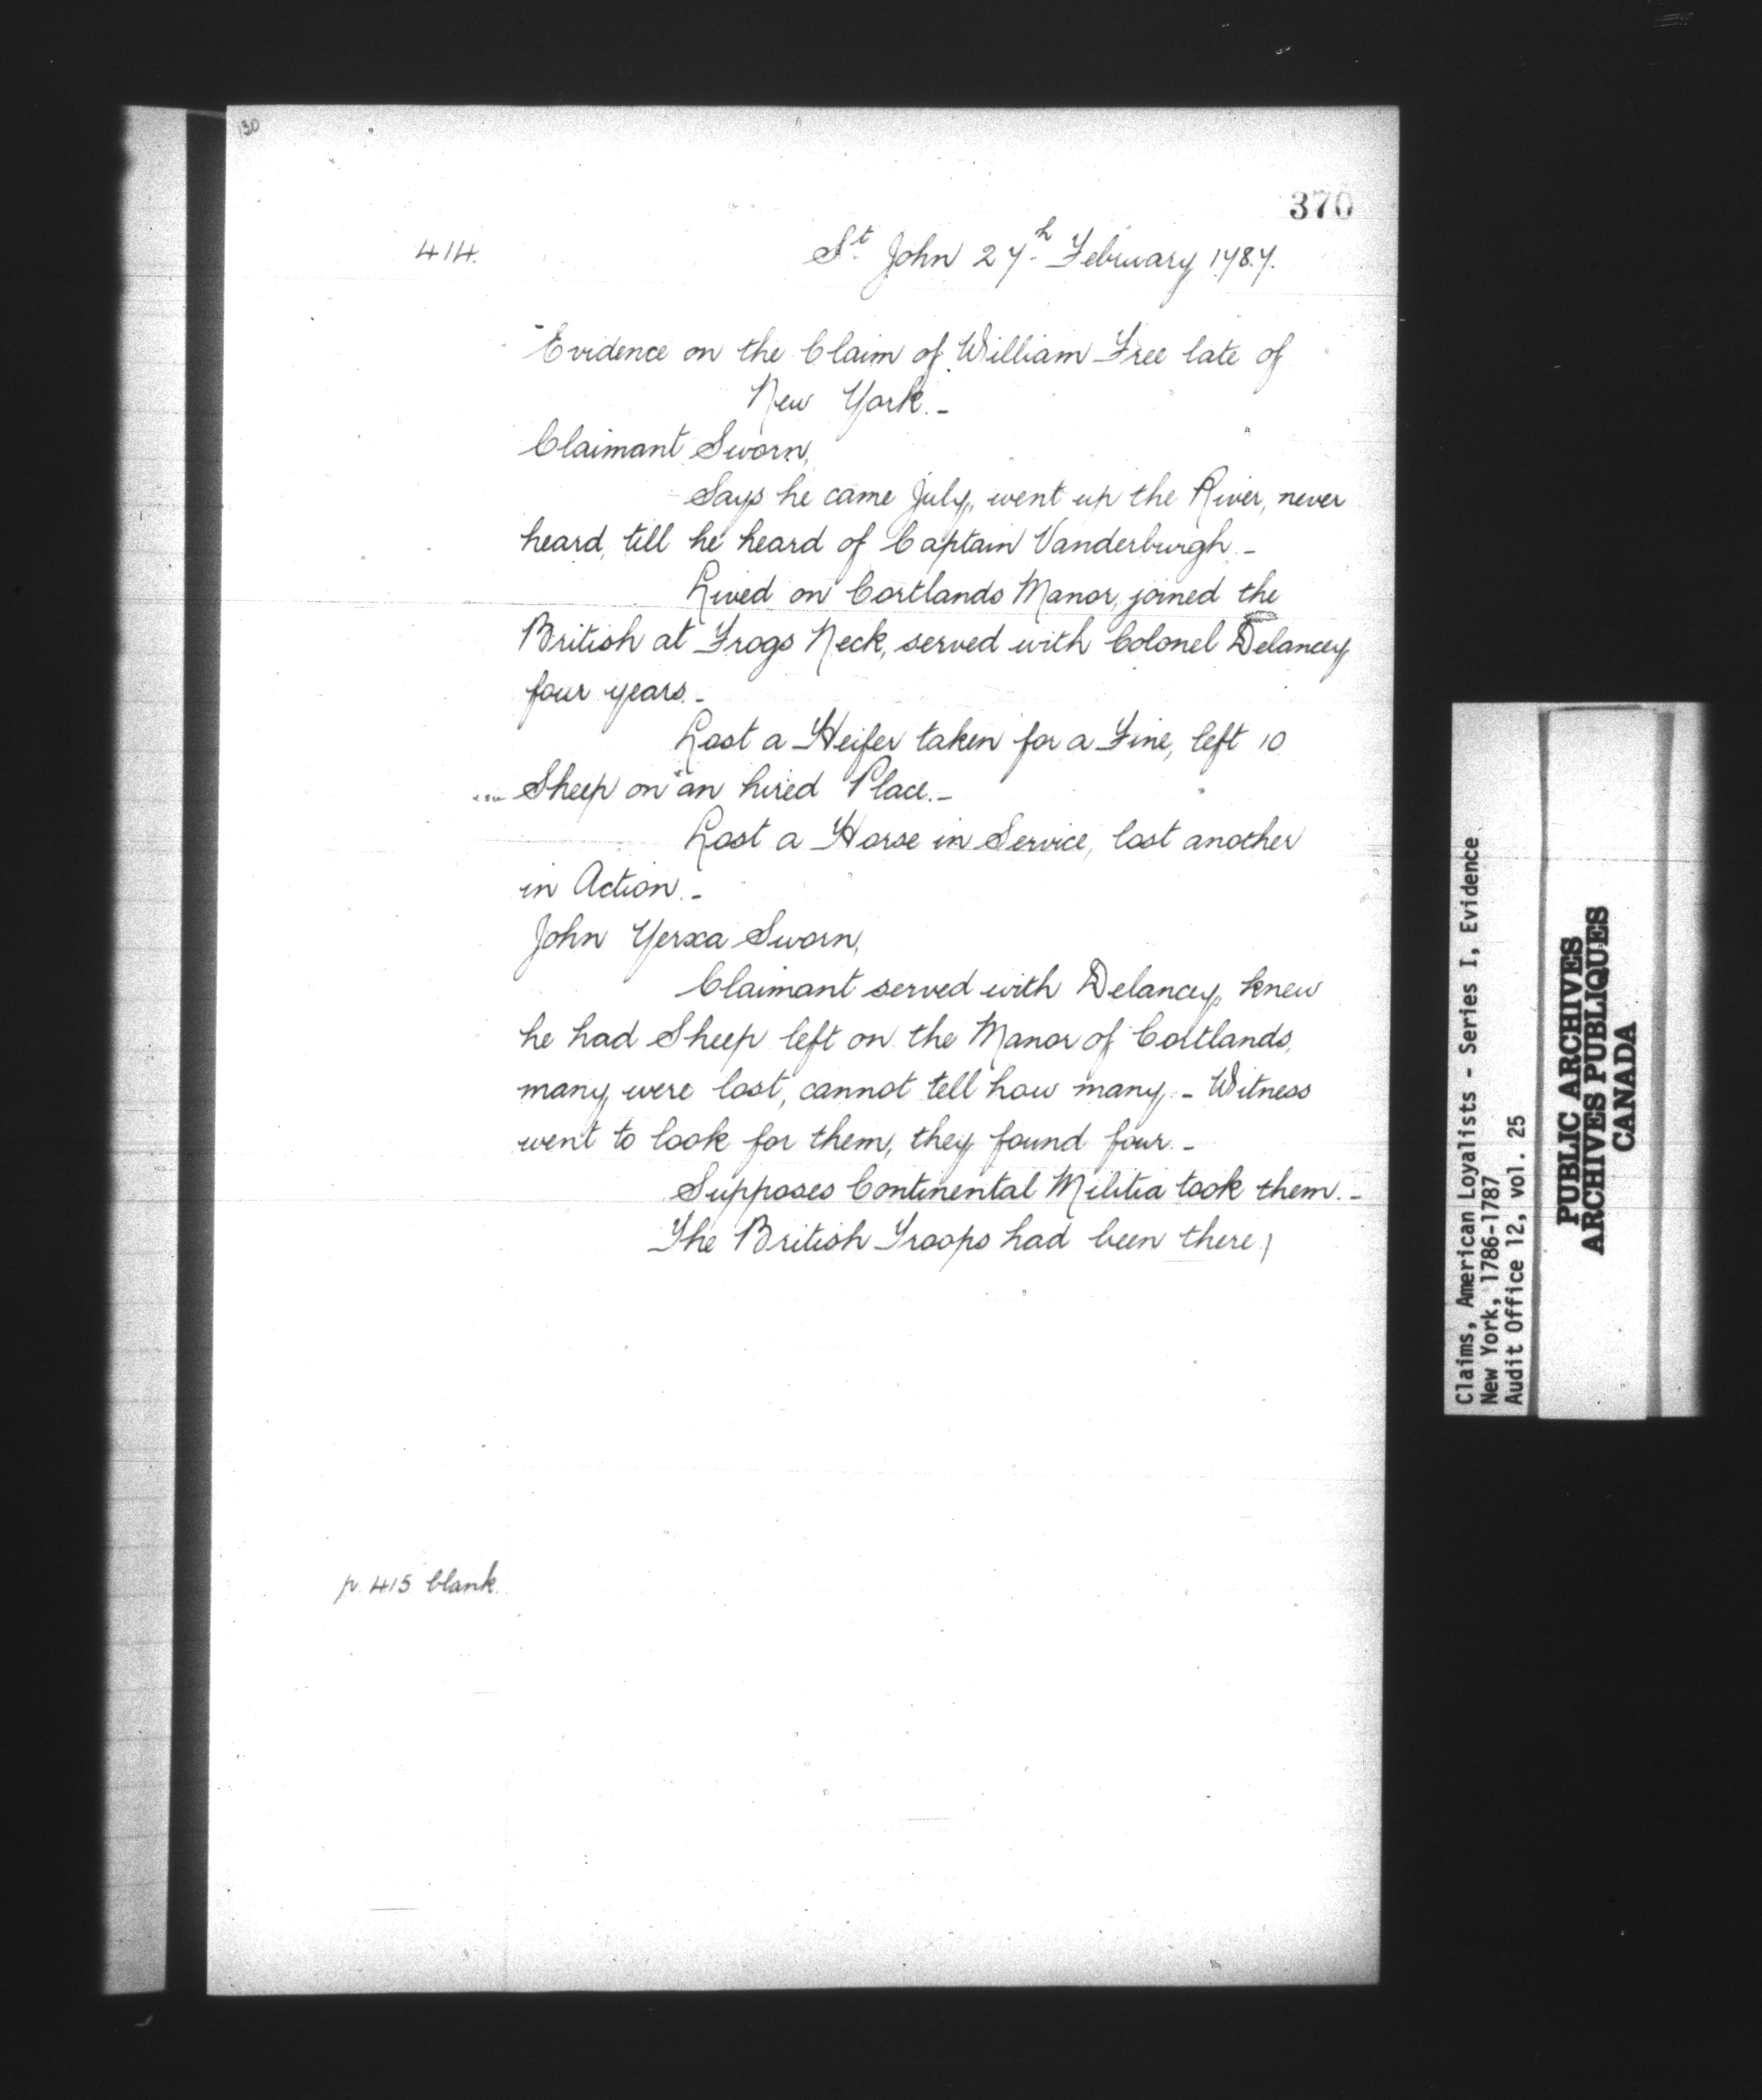 130
370
414.
St. John 27th February 1787.
Evidence on the Claim of William Free late of
New York.-
Claimant Sworn,
Says he came July, went up the River, never
heard, till he heard of Captain Vanderburgh.-
Lived on Cortlands Manor, joined the
British at Frogs Neck, served with Colonel Delancey
four years.-
Lost a Heifer taken for a Fine, left 10
Sheep on an hired Place.-
Lost a Horse in Service, lost another
in Action.-
John Yerxa Sworn,
Claimant served with Delancey, knew
he had Sheep left on the Manor of Cortlands,
many were lost, cannot tell how many.- Witness
went to look for them, they found four.-
Supposes Continental Militia took them.-
The British Troops had been there)
p. 415 blank.
Claims, American Loyalists - Series I, Evidence
New York, 1786-1787
Audit Office 12, vol. 25
PUBLIC ARCHIVES
ARCHIVES PUBLIQUES
CANADA